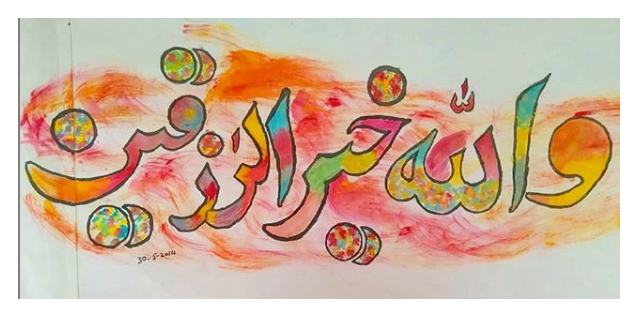 والله خير الرزقين
30-5-2014